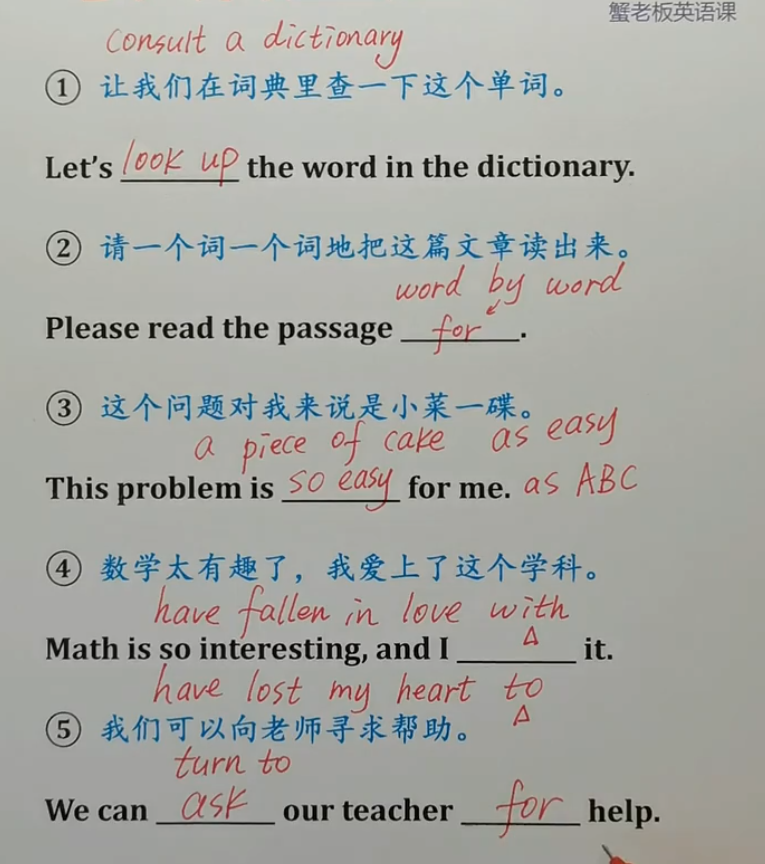 蟹老板英语课
consult a dictionary
① 让我们在词典里查一下这个单词。
Let's look up the word in the dictionary.
② 请一个词一个词地把这篇文章读出来。
word by word
Please read the passage for.
③ 这个问题对我来说是小菜一碟。
a piece of cake as easy
This problem is so easy for me. as ABC
④ 数学太有趣了，我爱上了这个学科。
have fallen in love with
Math is so interesting, and I ______ it.
have lost my heart to
⑤ 我们可以向老师寻求帮助。
turn to
We can ask our teacher for help.